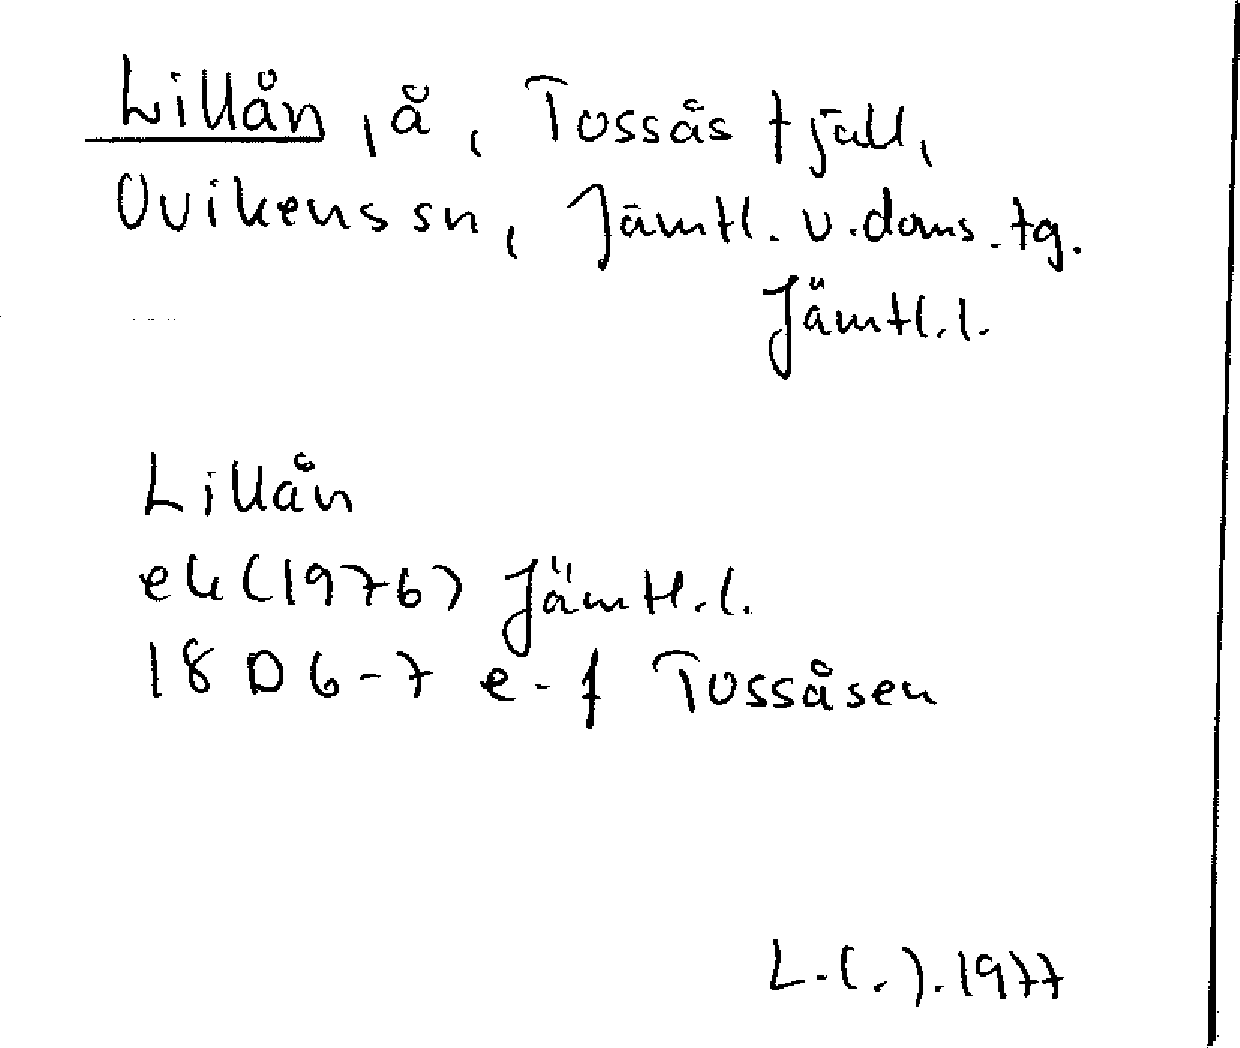 Lillån, å, Tossås fjäll,
Ovikens sn, Jämtl. v. doms. tg.
Jämtl. l.
Lillån
ek (1976) Jämtl. l.
18 D 6-7 e-f Tossåsen
L. (.). 1977